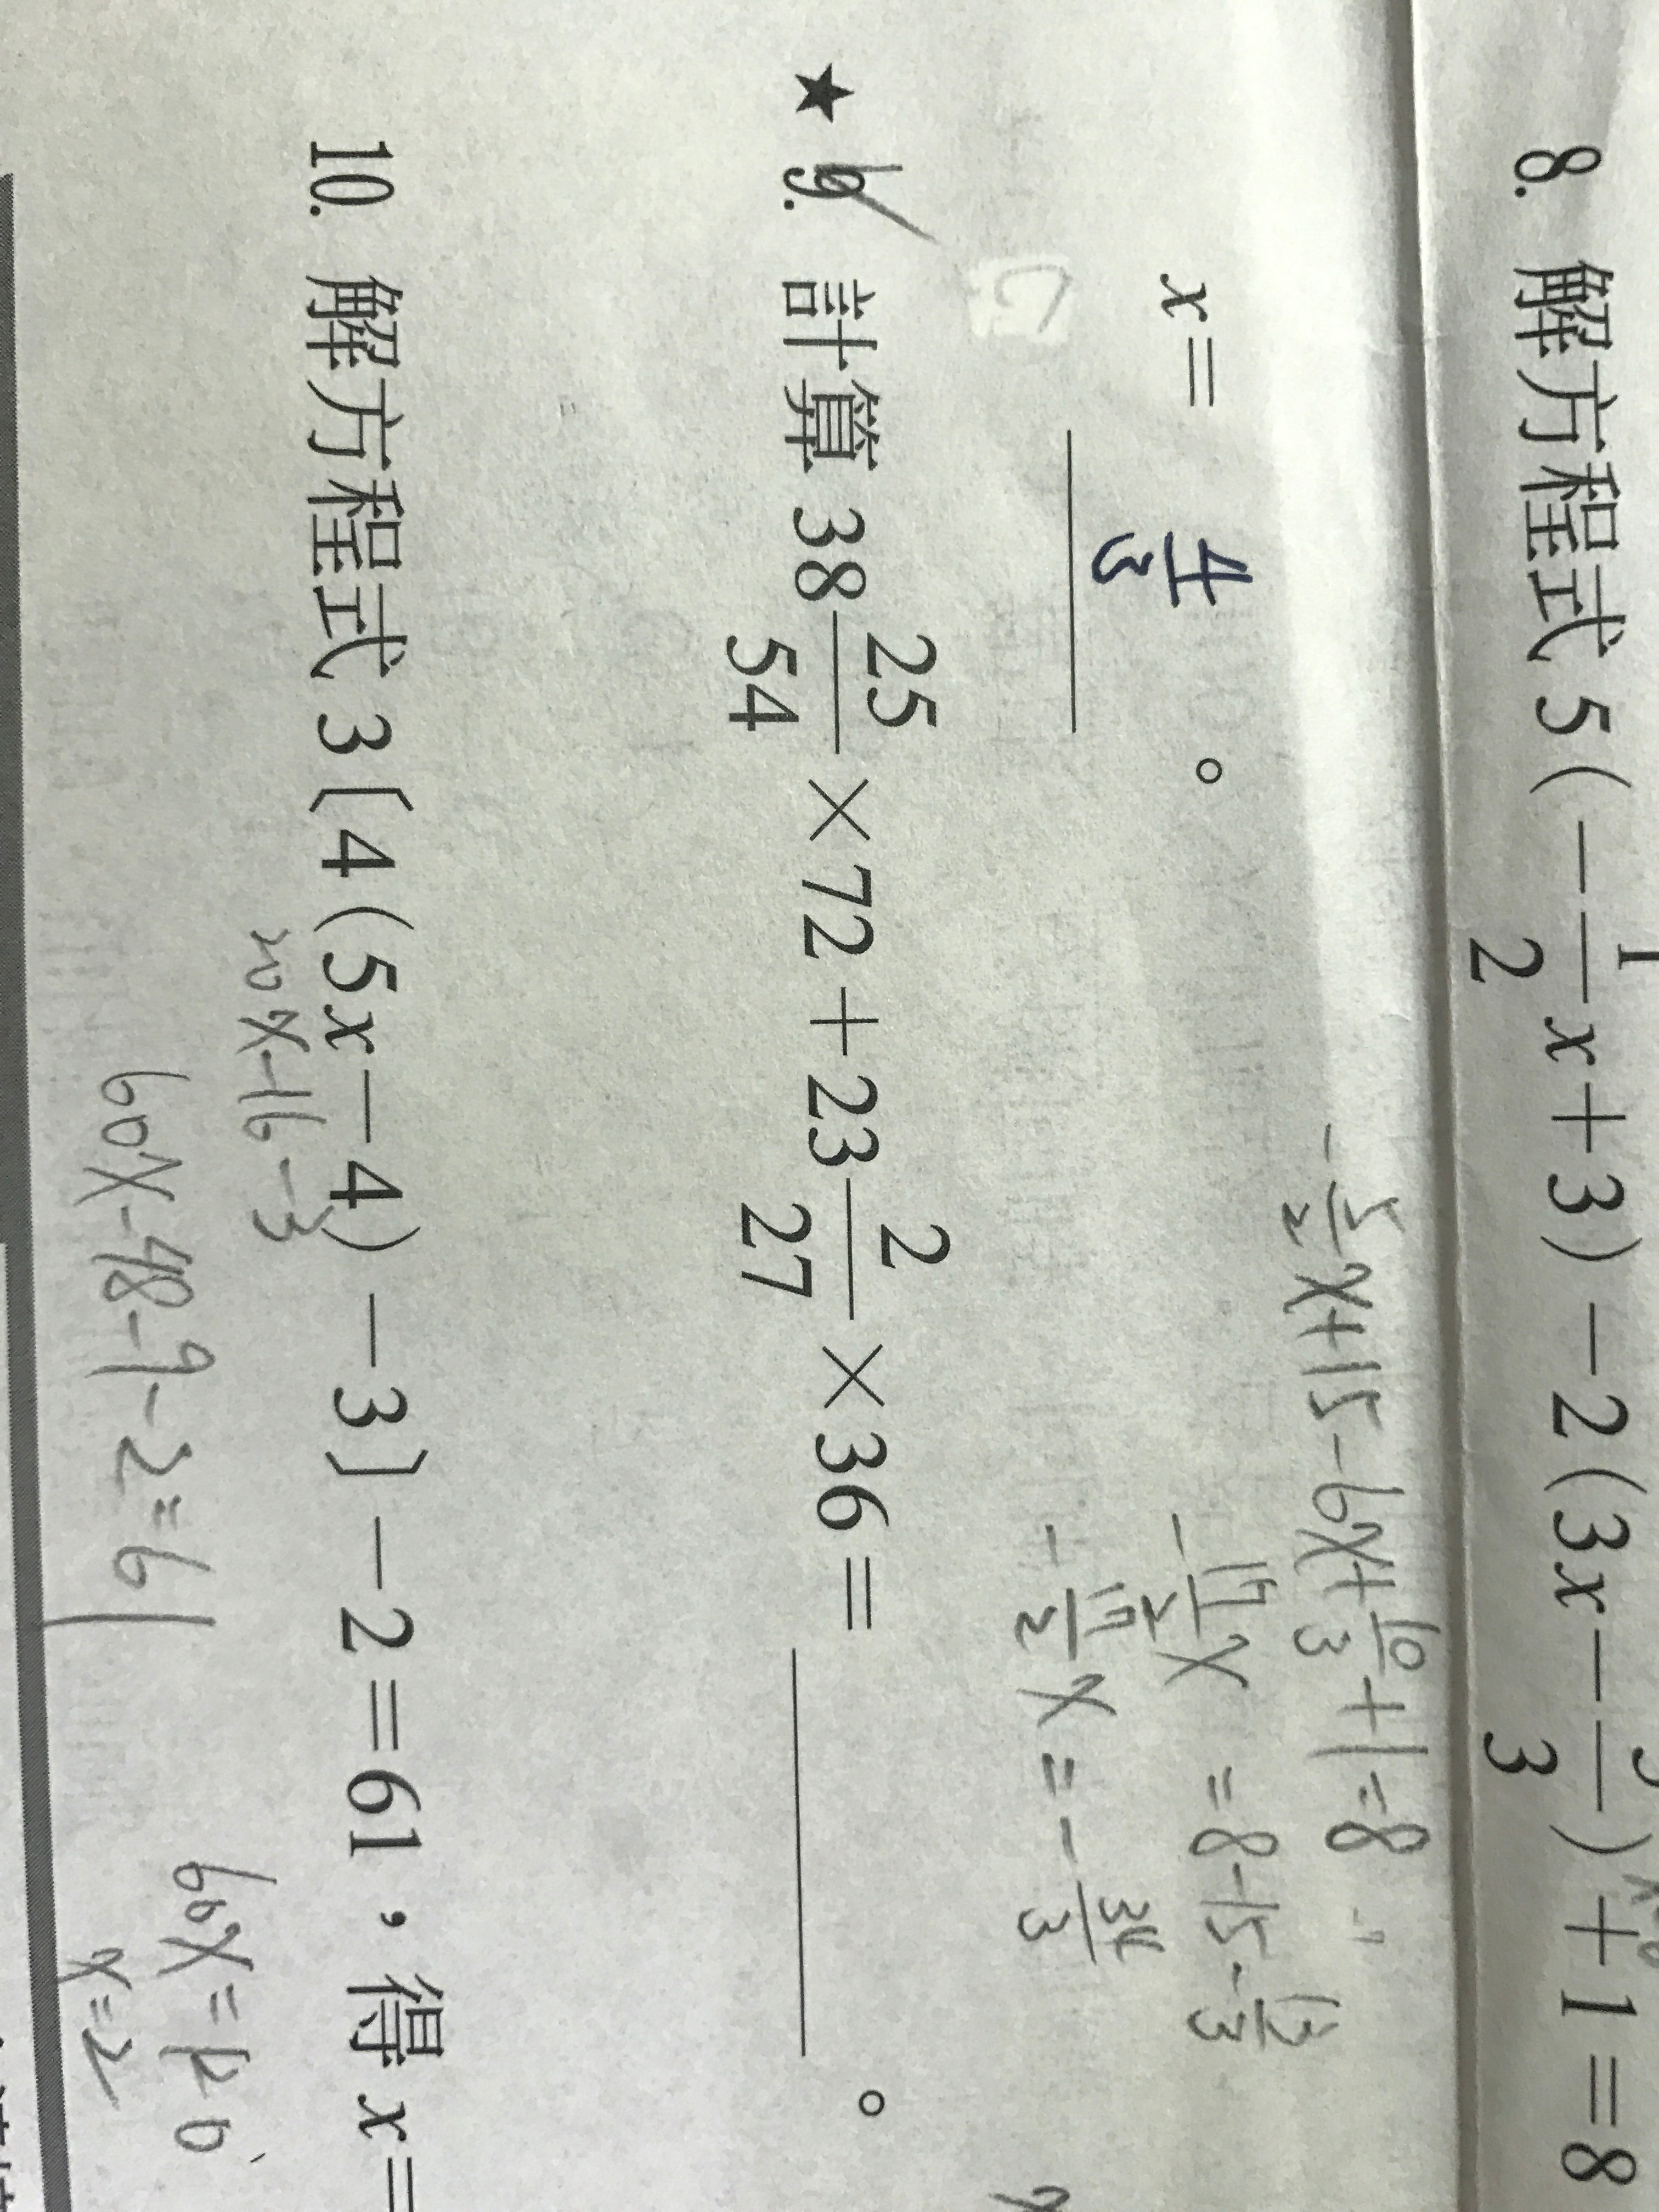 8. 解方程式 5(-1/2x+3)-2(3x-5/3)+1=8
-5/2X+15-6X+10/3+1=8
x= 4/3 。
-17/2X =8-15-13/3
-17/2X=-34/3
★ 9. 計算 38 25/54×72+23 2/27×36= 。
10. 解方程式 3〔4(5x-4)-3〕-2=61,得 x=
20X-16-3
60X-48-9-2=61
60X=120
X=2